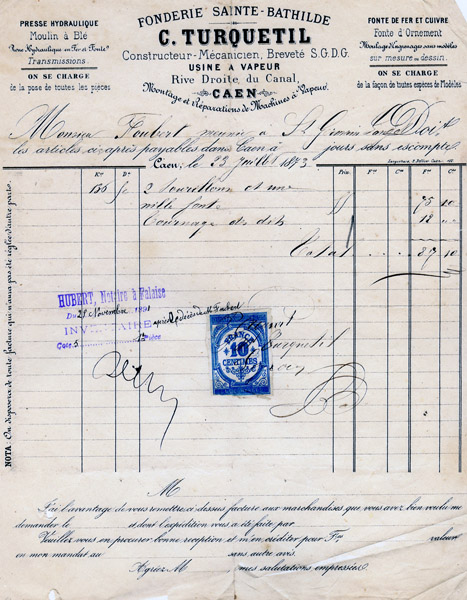 PRESSE HYDRAULIQUE
Moulin à Blé
Roue Hydraulique en Fer et Fonte
Transmissions
ON SE CHARGE
de la pose de toutes les pièces
FONDERIE SAINTE-BATHILDE
C. TURQUETIL
Constructeur-Mécanicien, Breveté S.G.D.G.
USINE A VAPEUR
Rive Droite du Canal,
CAEN
Montage et Réparations de Machines à Vapeur.
FONTE DE FER ET CUIVRE
Fonte d'Ornement
Moulage d'Engrenages sans modèles
sur mesure ou dessin.
ON SE CHARGE
de la façon de toutes espèces de Modèles
Monsieur Foubert meunier à St
les articles ci-après payables dans Caen à jours sans escompte
Caen, le 23 1873
Prix. F. C. F. C.
2 et une
fonte 75 10
Tournage des dits 12
Total 87 10
HUBERT, Notaire à Falaise
Du 21 Novembre 1891
INVENTAIRE après décès de M. Foubert
Cote 5 pièce
FRANCE
10
CENTIMES
Turquetil
NOTA: On disposera de toute facture qui n'aura pas été réglée d'autre part.
M
J'ai l'avantage de vous remettre ci-dessus facture aux marchandises que vous avez bien voulu me
demander le et dont l'expédition vous a été faite par
Veuillez vous en procurer bonne réception et m'en créditer pour Frs valeur
en mon mandat au sans autre avis.
Agréez M mes salutations empressées.